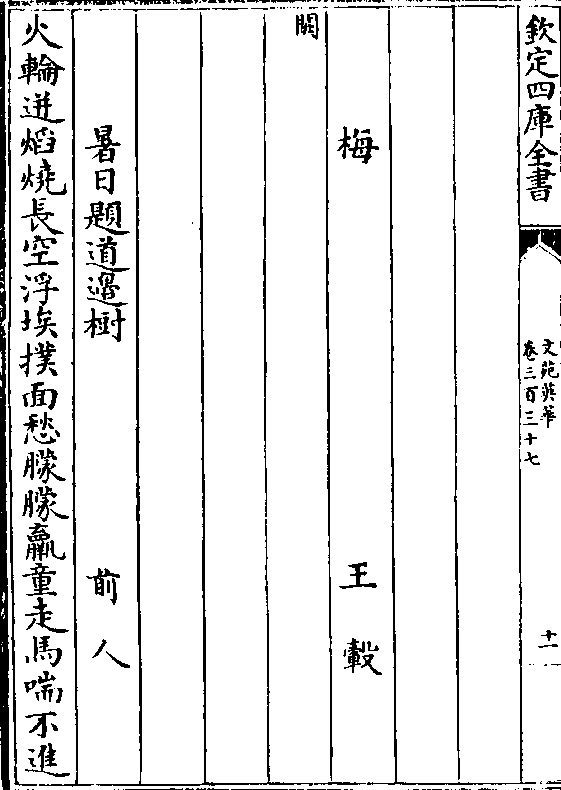 欽定四庫全書
文苑英華
卷三百三十七
十一
梅
王轂
闕
暑日題道邊樹
前人
火輪迸焰燒長空浮埃撲面愁朦朦羸童走馬喘不進